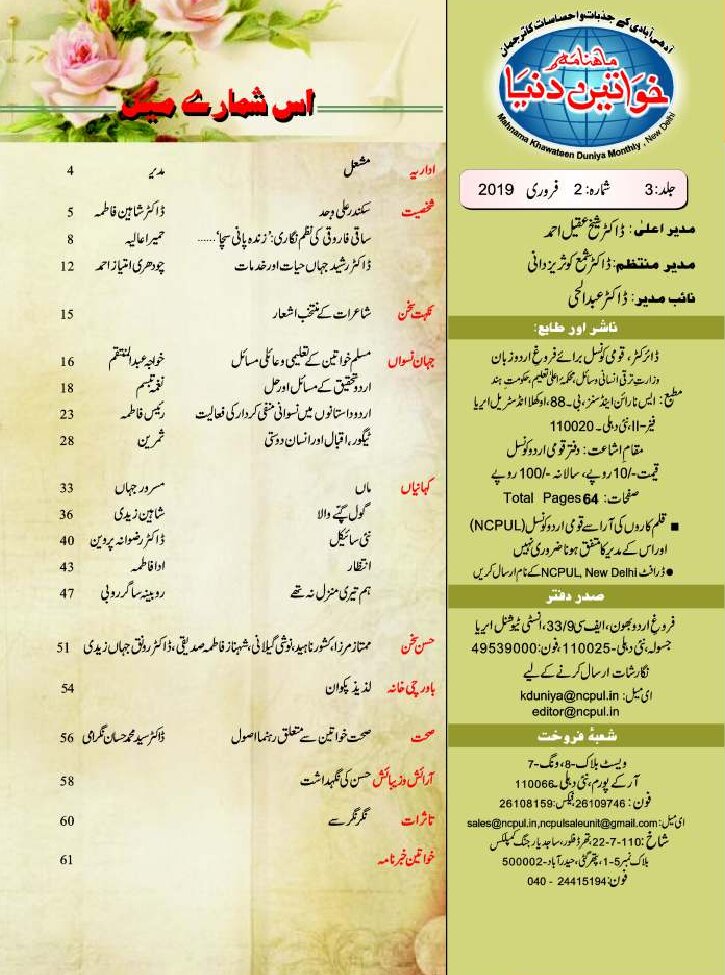 آدھی آبادی کے جذبات و احساسات کا ترجمان
ماہنامہ
خواتین دنیا
Mahnama Khawateen Duniya Monthly, New Delhi
جلد: 3 شمارہ: 2 فروری 2019
مدیر اعلیٰ: ڈاکٹر شیخ عقیل احمد
مدیر منتظم: ڈاکٹر شمع کوثر یزدانی
نائب مدیر: ڈاکٹر عبدالحی
ناشر اور طابع:
ڈائرکٹر، قومی کونسل برائے فروغ اردو زبان
وزارت ترقی انسانی وسائل، محکمۂ اعلیٰ تعلیم، حکومت ہند
مطبع: ایس نارائن اینڈ سنز، بی۔88، اوکھلا انڈسٹریل ایریا
فیز-II، نئی دہلی۔ 110020
مقام اشاعت: دفتر قومی اردو کونسل
قیمت-/10 روپے، سالانہ -/100 روپے
صفحات: Total Pages 64
■ قلم کاروں کی آرا سے قومی اردو کونسل (NCPUL)
اور اس کے مدیر کا متفق ہونا ضروری نہیں
● ڈرافٹ NCPUL, New Delhi کے نام ارسال کریں
صدر دفتر
فروغ اردو بھون، ایف سی 33/9، انسٹی ٹیوشنل ایریا
جسولہ، نئی دہلی۔ 110025، فون: 49539000
نگارشات ارسال کرنے کے لیے
ای میل: kduniya@ncpul.in
editor@ncpul.in
شعبۂ فروخت
ویسٹ بلاک-8، ونگ-7
آر کے پورم، نئی دہلی۔ 110066
فون: 26109746، فیکس: 26108159
ای میل: sales@ncpul.in, ncpulsaleunit@gmail.com
شاخ: 110-7-22، تھرڈ فلور، ساجد یار جنگ کمپلکس
بلاک نمبر 5-1، پتھر گٹی، حیدرآباد-500002
فون: 24415194 - 040
اس شمارے میں
اداریہ مشعل مدیر 4
شخصیت سکندر علی وجد ڈاکٹر شاہین فاطمہ 5
ساقی فاروقی کی نظم نگاری: 'زندہ پانی سچا'...... حمیرا عالیہ 8
ڈاکٹر رشید جہاں حیات اور خدمات چودھری امتیاز احمد 12
نکہت سخن شاعرات کے منتخب اشعار 15
جہان نسواں مسلم خواتین کے تعلیمی و عائلی مسائل خواجہ عبدالمنتقم 16
اردو تحقیق کے مسائل اور حل نغمہ تبسم 18
اردو داستانوں میں نسوانی منفی کردار کی فعالیت رئیس فاطمہ 23
ٹیگور، اقبال اور انسان دوستی ثمرین 28
کہانیاں ماں مسرور جہاں 33
گول گپے والا شاہین زیدی 36
نئی سائیکل ڈاکٹر رضوانہ پروین 40
انتظار ادا فاطمہ 43
ہم تیری منزل نہ تھے روبینہ ساگر روبی 47
حسن سخن ممتاز مرزا، کشور ناہید، نوشی گیلانی، شہناز فاطمہ صدیقی، ڈاکٹر رونق جہاں زیدی 51
باورچی خانہ لذیذ پکوان 54
صحت صحت خواتین سے متعلق رہنما اصول ڈاکٹر سید محمد حسان نگرامی 56
آرائش و زیبائش حسن کی نگہداشت 58
تاثرات نگر نگر سے 60
خواتین خبرنامہ 61